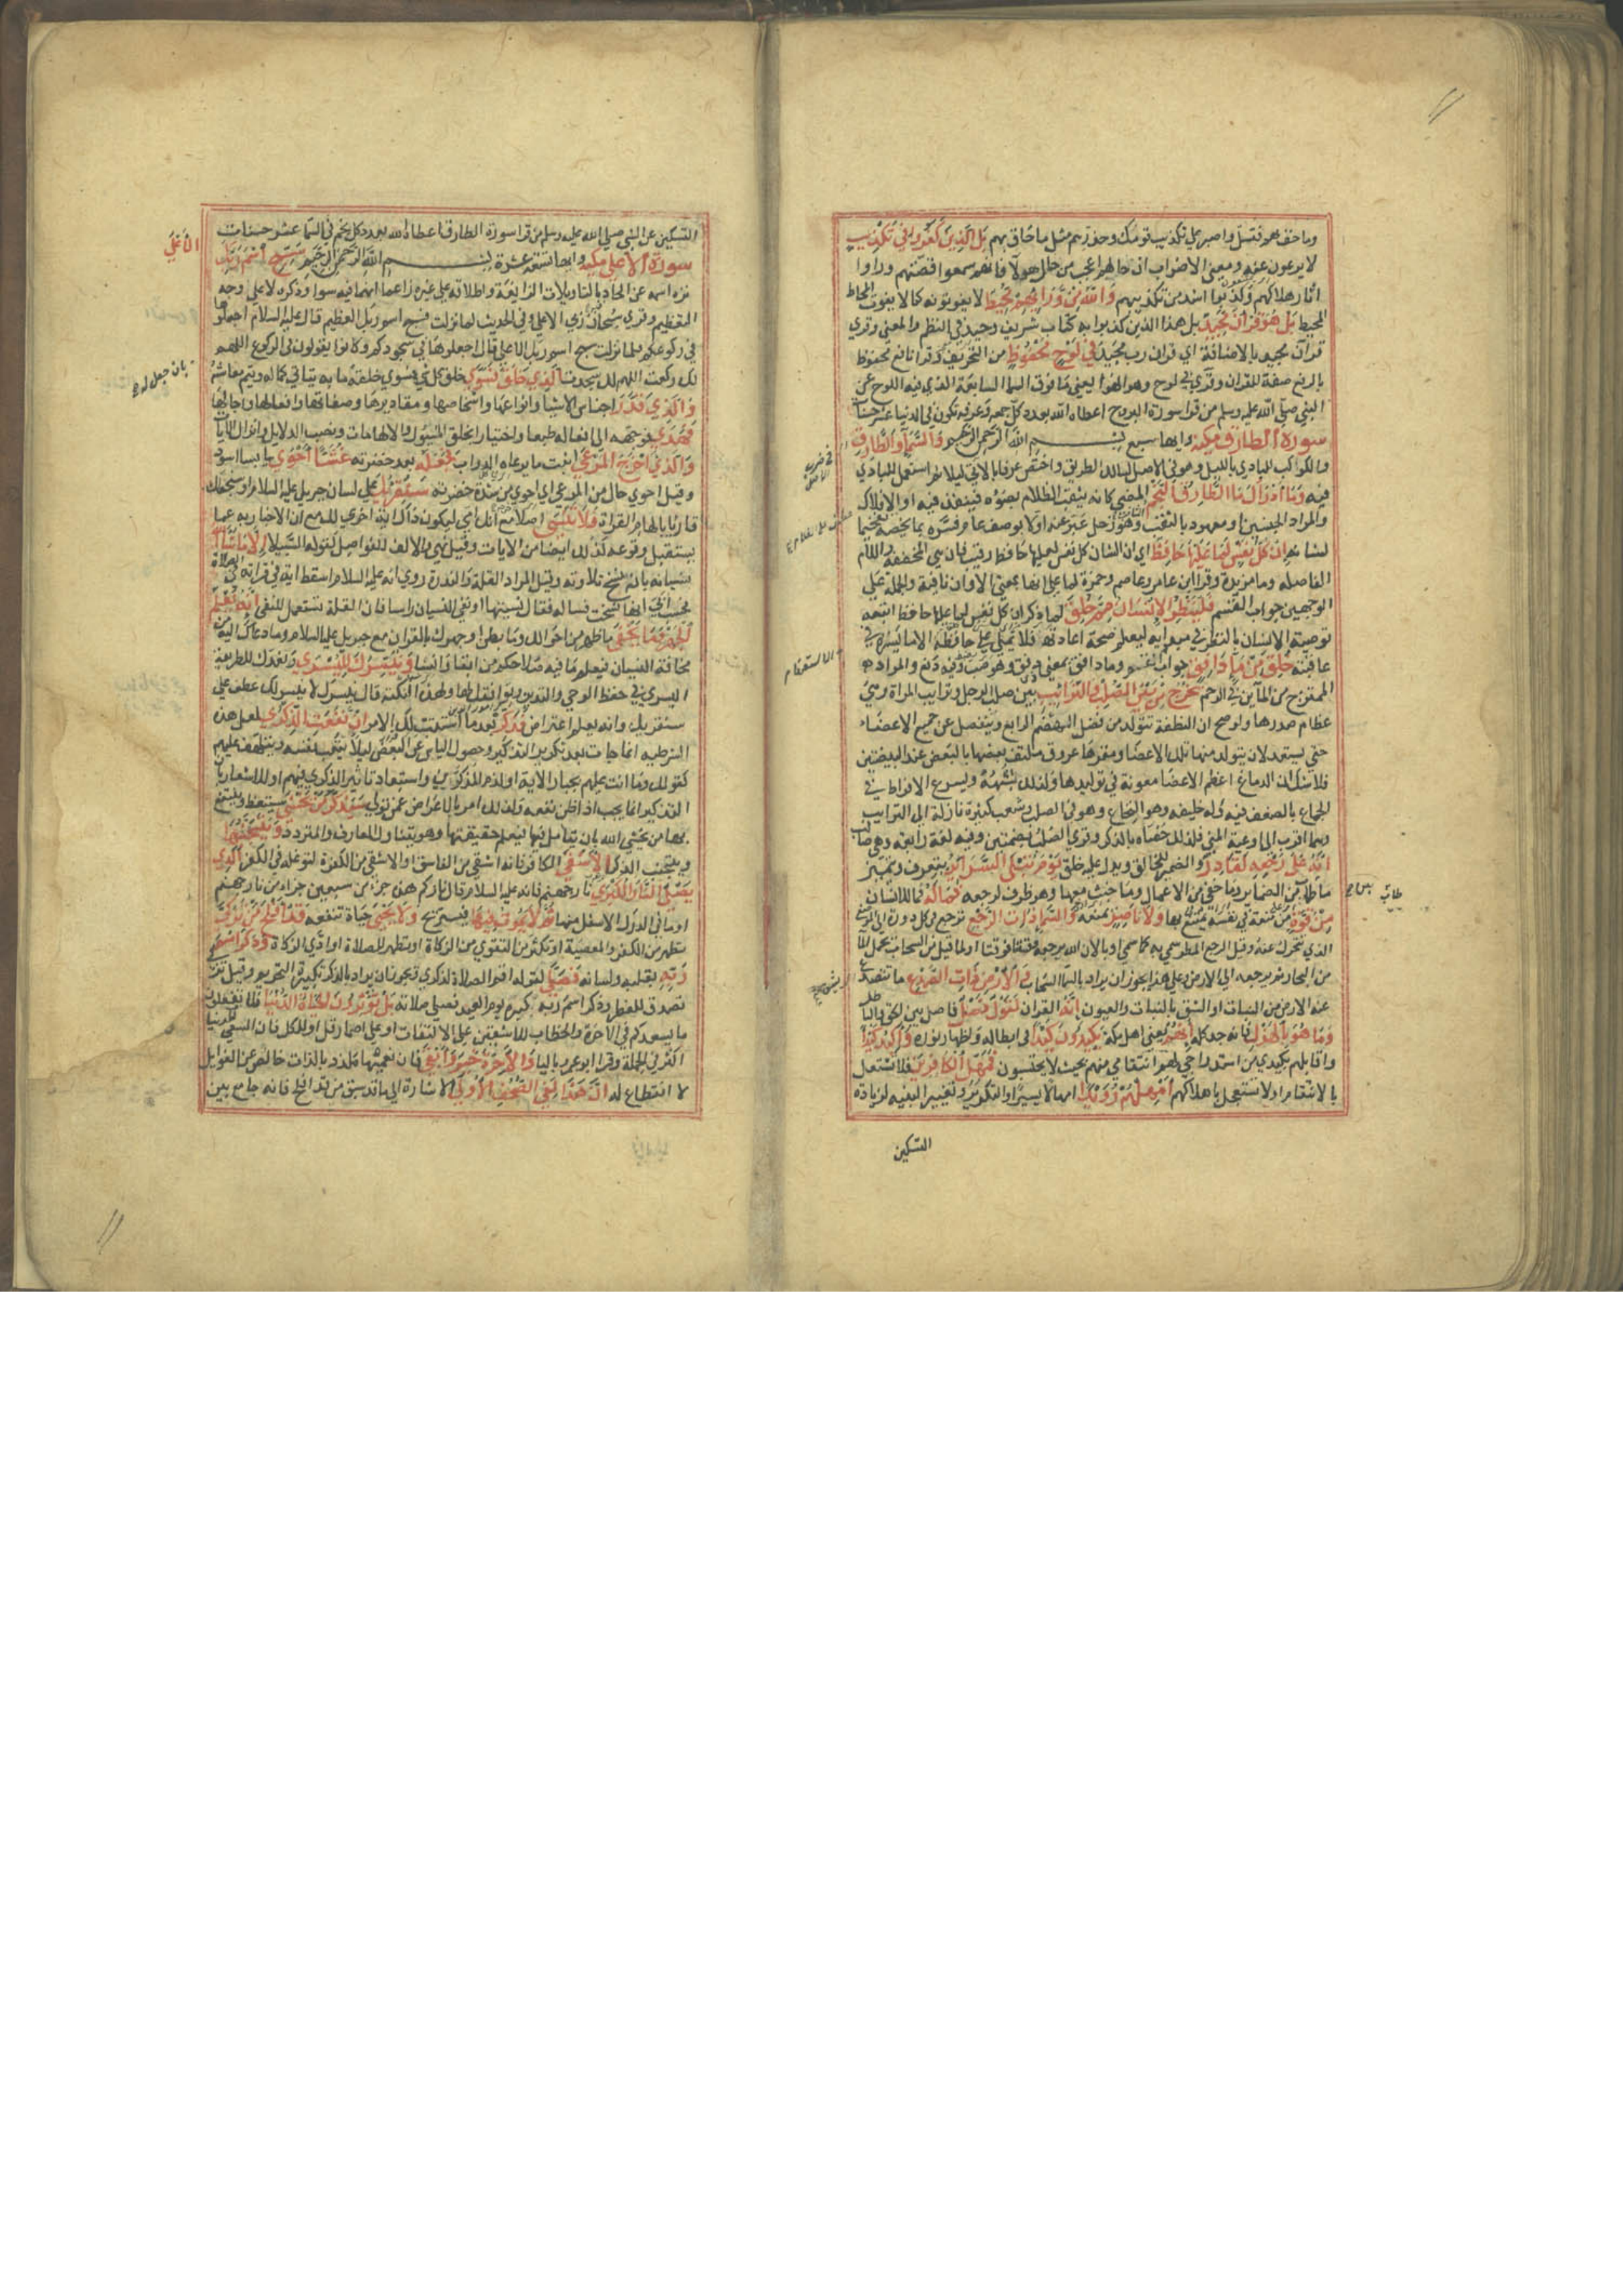 وما حق هم فتسل واصبر على تكذيب قومك وحذرهم مثل ما حاق بهم بَلِ الَّذِينَ كَفَرُوا فِي تَكْذِيبٍ
لا يرعون عنه ومعنى الاضراب ان حالهم اعجب من حال هولا فانهم سمعوا قصتهم وراوا
اثار هلاكهم وكذبوا اشد من تكذيبهم وَاللَّهُ مِنْ وَرَائِهِمْ مُحِيطٌ لا يفوتونه كما لا يفوت المحاط
المحيط بَلْ هُوَ قُرْآنٌ مَجِيدٌ بل هذا الذي كذبوا به كتاب شريف وحيد في النظم والمعنى وقري
قران مجيد بالاضافة اي قران رب مجيد فِي لَوْحٍ مَحْفُوظٍ من التحريف وقرا نافع محفوظ
بالرفع صفة للقران وقري في لوح وهو الهوا يعني ما فوق السما السابعة الذي فيه اللوح عن
النبي صلى الله عليه وسلم من قرا سورة البروج اعطاه الله بعدد كل جمعه وعرفه تكون في الدنيا عشر حسنات
سورة الطارق مكية وايها سبع بسم الله الرحمن الرحيم وَالسَّمَاءِ وَالطَّارِقِ
والكواكب البادي بالليل وهو في الاصل لسالك الطريق واختص عرفا بالاتي ليلا ثم استعمل للبادي
فيه وَمَا أَدْرَاكَ مَا الطَّارِقُ النَّجْمُ المضي كانه يثقب الظلام بضوه فينفذ فيه او الافلاك
والمراد الجنس او معهود بالثقب وهو زحل عبر عنه اولا بوصف عام وفسره بما يخصه تفخيما
لشانه إِنْ كُلُّ نَفْسٍ لَمَّا عَلَيْهَا حَافِظٌ اي ان الشان كل نفس لعليها حافظ رقيب فان هي المخففة واللام
الفاصله وما مزيدة وقرا ابن عامر وعاصم وحمزة لما على انها بمعنى الا وان نافية والجملة على
الوجهين جواب القسم فَلْيَنْظُرِ الْإِنْسَانُ مِمَّ خُلِقَ لما ذكر ان كل نفس لما عليها حافظ اتبعه
توصية الانسان بالنظر في مبداه ليعلم صحة اعادته فلا يملي على حافظه الا ما يسره في
عاقبته خُلِقَ مِنْ مَاءٍ دَافِقٍ جواب الاستفهام وما دافق بمعنى ذي دفق وهو صب فيه دفع والمراد به
الممتزج من المآين في الرحم يَخْرُجُ مِنْ بَيْنِ الصُّلْبِ وَالتَّرَائِبِ بين صلب الرجل وترايب المراة وهي
عظام صدرها ولو صح ان النطفة تتولد من فضل الهضم الرابع وتنفصل عن جميع الاعضاء
حتى يستعد لان يتولد منها تلك الاعضا ومقرها عروق ملتف بعضها بالبعض عند البيضتين
فلا شك ان الدماغ اعظم الاعضا معونة في توليدها ولذلك تشبهه ويسرع الافراط في
الجماع بالضعف فيه وله خليفه وهو النخاع وهو في الصلب وشعب كثيرة نازلة الى الترايب
وهما اقرب الى اوعية المني فلذلك خصا بالذكر وقري الصلب بفتحتين وفيه لغة رابعه وهي صالب
إِنَّهُ عَلَى رَجْعِهِ لَقَادِرٌ والضمير للخالق ويدل عليه خلق يَوْمَ تُبْلَى السَّرَائِرُ يتعرف ويتميز
ما طاب من الضماير وما خفي من الاعمال وما خبث منها وهو ظرف لرجعه فَمَا لَهُ فما للانسان
مِنْ قُوَّةٍ من منعة في نفسه يمتنع بها وَلَا نَاصِرٍ يمنعه وَالسَّمَاءِ ذَاتِ الرَّجْعِ ترجع في كل دورة الى الموضع
الذي تتحرك عنه وقيل الرجع المطر سمي به كما سمي اوبا لان الله يرجعه وقتا فوقتا او لما قيل من السحاب يحمل الما
من البحار ثم يرجعه الى الارض وعلى هذا يجوز ان يراد بالسما السحاب وَالْأَرْضِ ذَاتِ الصَّدْعِ ما تتصدع
عنه الارض من النبات او الشق بالنبات والعيون إِنَّهُ القران لَقَوْلٌ فَصْلٌ فاصل بين الحق والباطل
وَمَا هُوَ بِالْهَزْلِ فانه جد كله إِنَّهُمْ يعني اهل مكة يَكِيدُونَ كَيْدًا في ابطاله واظهار نوره وَأَكِيدُ كَيْدًا
واقابلهم بكيدي من استدراجي لهم وانتقامي منهم بحيث لا يحتسبون فَمَهِّلِ الْكَافِرِينَ فلا تشتغل
بالانتقام او لا تستعجل باهلاكهم أَمْهِلْهُمْ رُوَيْدًا امهالا يسيرا والتكرير وتغيير البنيه لزيادة
التسكين
الاستفهام
طاب
التسكين عن النبي صلى الله عليه وسلم من قرا سورة الطارق اعطاه الله بعدد كل نجم في السما عشر حسنات
سورة الاعلى مكية وايها تسعة عشرة بسم الله الرحمن الرحيم سَبِّحِ اسْمَ رَبِّكَ
الْأَعْلَى
نزه اسمه عن الحاد بالتاويلات الزايغة واطلاقه على غيره زاعما انهما فيه سوا وذكره لا على وجه
التعظيم وقري سبحان ربي الاعلى وفي الحديث لما نزلت فسبح باسم ربك العظيم قال عليه السلام اجعلوها
في ركوعكم فلما نزلت سبح اسم ربك الاعلى قال اجعلوها في سجودكم وكانوا يقولون في الركوع اللهم
لك ركعت اللهم لك سجدت الَّذِي خَلَقَ فَسَوَّى خلق كل شي فسوى خلقه بما به يتاتى كماله ويتم معاشه
بان جعل له
وَالَّذِي قَدَّرَ اجناس الاشيا وانواعها واشخاصها ومقاديرها وصفاتها وافعالها واجالها
فَهَدَى فوجهه الى افعاله طبعا واختيارا بخلق الميول والالهامات ونصب الدلايل وانزال الايات
وَالَّذِي أَخْرَجَ الْمَرْعَى انبت ما يرعاه الدواب فَجَعَلَهُ بعد خضرته غُثَاءً أَحْوَى يابسا اسود
وقيل احوى حال من المرعى اي احوى من شدة خضرته سَنُقْرِئُكَ على لسان جبريل عليه السلام او سنجعلك
قاريا بالهام القراة فَلَا تَنْسَى اصلا مع انك امي ليكون ذلك اية اخرى لك مع ان الاخبار به عما
يستقبل ووقوعه كذلك ايضا من الايات وقيل نهي والالف للفواصل كقوله السبيلا إِلَّا مَا شَاءَ اللَّهُ
نسيانه بان نسخ تلاوته وقيل المراد القلة والندرة روي انه عليه السلام اسقط اية في قراته في الصلاة
فحسب ابي انها نسخت فساله فقال نسيتها او نفي النسيان راسا فان القلة تستعمل للنفي إِنَّهُ يَعْلَمُ
الْجَهْرَ وَمَا يَخْفَى ما ظهر من احوالكم وما بطن او جهرك بالقران مع جبريل عليه السلام وما دعاك اليه من
مخافة النسيان فيعلم ما فيه صلاحكم من ابقا وانسا وَنُيَسِّرُكَ لِلْيُسْرَى ونعدك للطريقة
اليسرى في حفظ الوحي والتدين ونوفقك لها ولهذه النكتة قال نيسرك لا نيسر لك عطف على
سنقريك وانه يعلم اعتراض فَذَكِّرْ بعد ما استتب لك الامر إِنْ نَفَعَتِ الذِّكْرَى لعل هذه
الشرطيه انما جات بعد تكرير التذكير وحصول الياس عن البعض ليلا يتعب نفسه ويتلهف عليهم
كقوله وما انت عليهم بجبار الاية او لذم المذكرين واستبعاد تاثير الذكرى فيهم او للاشعار بان
التذكير انما يجب اذا ظن نفعه ولذلك امر بالاعراض عمن تولى سَيَذَّكَّرُ مَنْ يَخْشَى سيتعظ وينتفع
بها من يخشى الله بان يتامل فيها فيعلم حقيقتها وهو يتناول العارف والمتردد وَيَتَجَنَّبُهَا
ويتجنب الذكرى الْأَشْقَى الكافر فانه اشقى من الفاسق او الاشقى من الكفرة لتوغله في الكفر الَّذِي
يَصْلَى النَّارَ الْكُبْرَى نار جهنم فانه عليه السلام قال ناركم هذه جزء من سبعين جزءا من نار جهنم
او ما في الدرك الاسفل منها ثُمَّ لَا يَمُوتُ فِيهَا فيستريح وَلَا يَحْيَى حياة تنفعه قَدْ أَفْلَحَ مَنْ تَزَكَّى
تطهر من الكفر والمعصية او تكثر من التقوى من الزكاة او تطهر للصلاة او ادى الزكاة وَذَكَرَ اسْمَ
رَبِّهِ بقلبه ولسانه فَصَلَّى كقوله اقم الصلاة لذكري ويجوز ان يراد بالذكر تكبيرة التحريم وقيل تزكى
تصدق للفطر وذكر اسم ربه كبره يوم العيد فصلى صلاته بَلْ تُؤْثِرُونَ الْحَيَاةَ الدُّنْيَا فلا تفعلون
ما يسعدكم في الاخرة والخطاب للاشقين على الالتفات او على اضمار قل او للكل فان السعي
اكثر في الجملة وقرا ابو عمرو باليا وَالْآخِرَةُ خَيْرٌ وَأَبْقَى فان نعيمها ملذ بالذات خالص عن الغوايل
لا انقطاع له إِنَّ هَذَا لَفِي الصُّحُفِ الْأُولَى الاشارة الى ما قد سبق من قد افلح فانه جامع بين